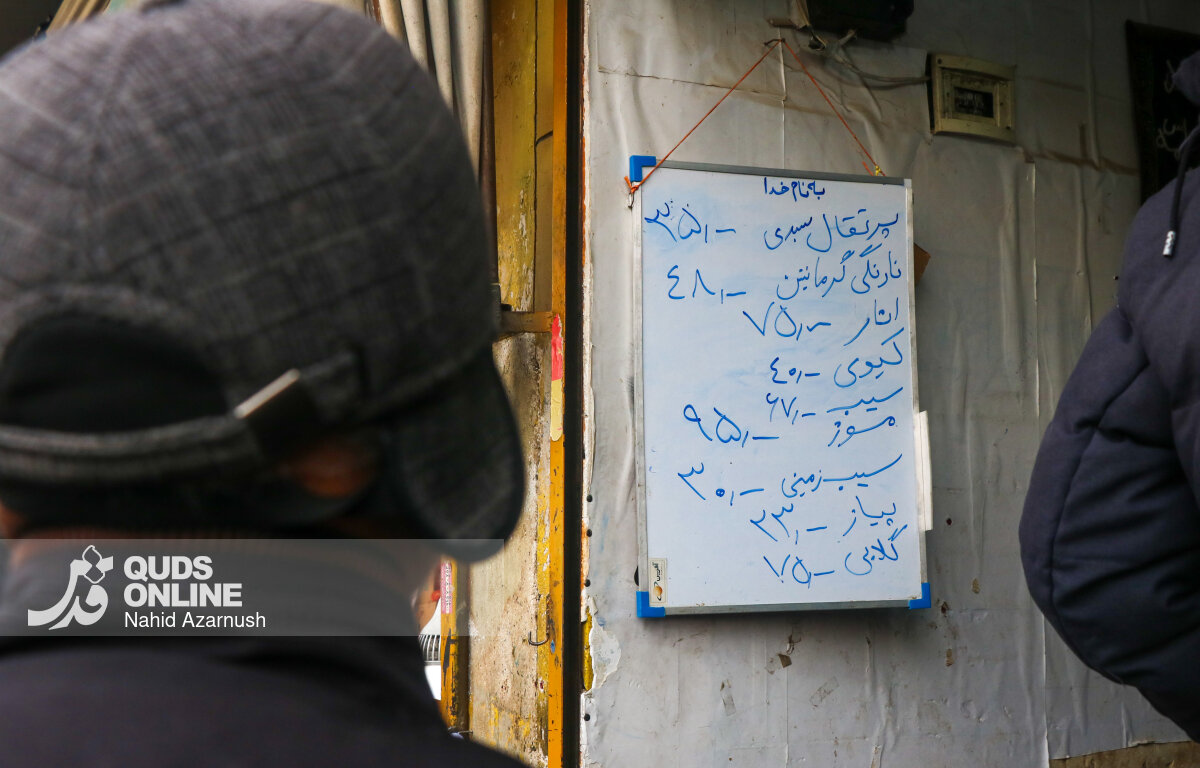 به نام خدا
پرتقال سبدی ۳۵٫-
نارنگی گرمانتن ۴۸٫-
انار ۷۵٫-
کیوی ۴۰٫-
سیب ۶۷٫-
موز ۹۵٫-
سیب زمینی ۳۰٫-
پیاز ۲۳٫-
گلابی ۷۵٫-
قدس
QUDS
ONLINE
Nahid Azarnush